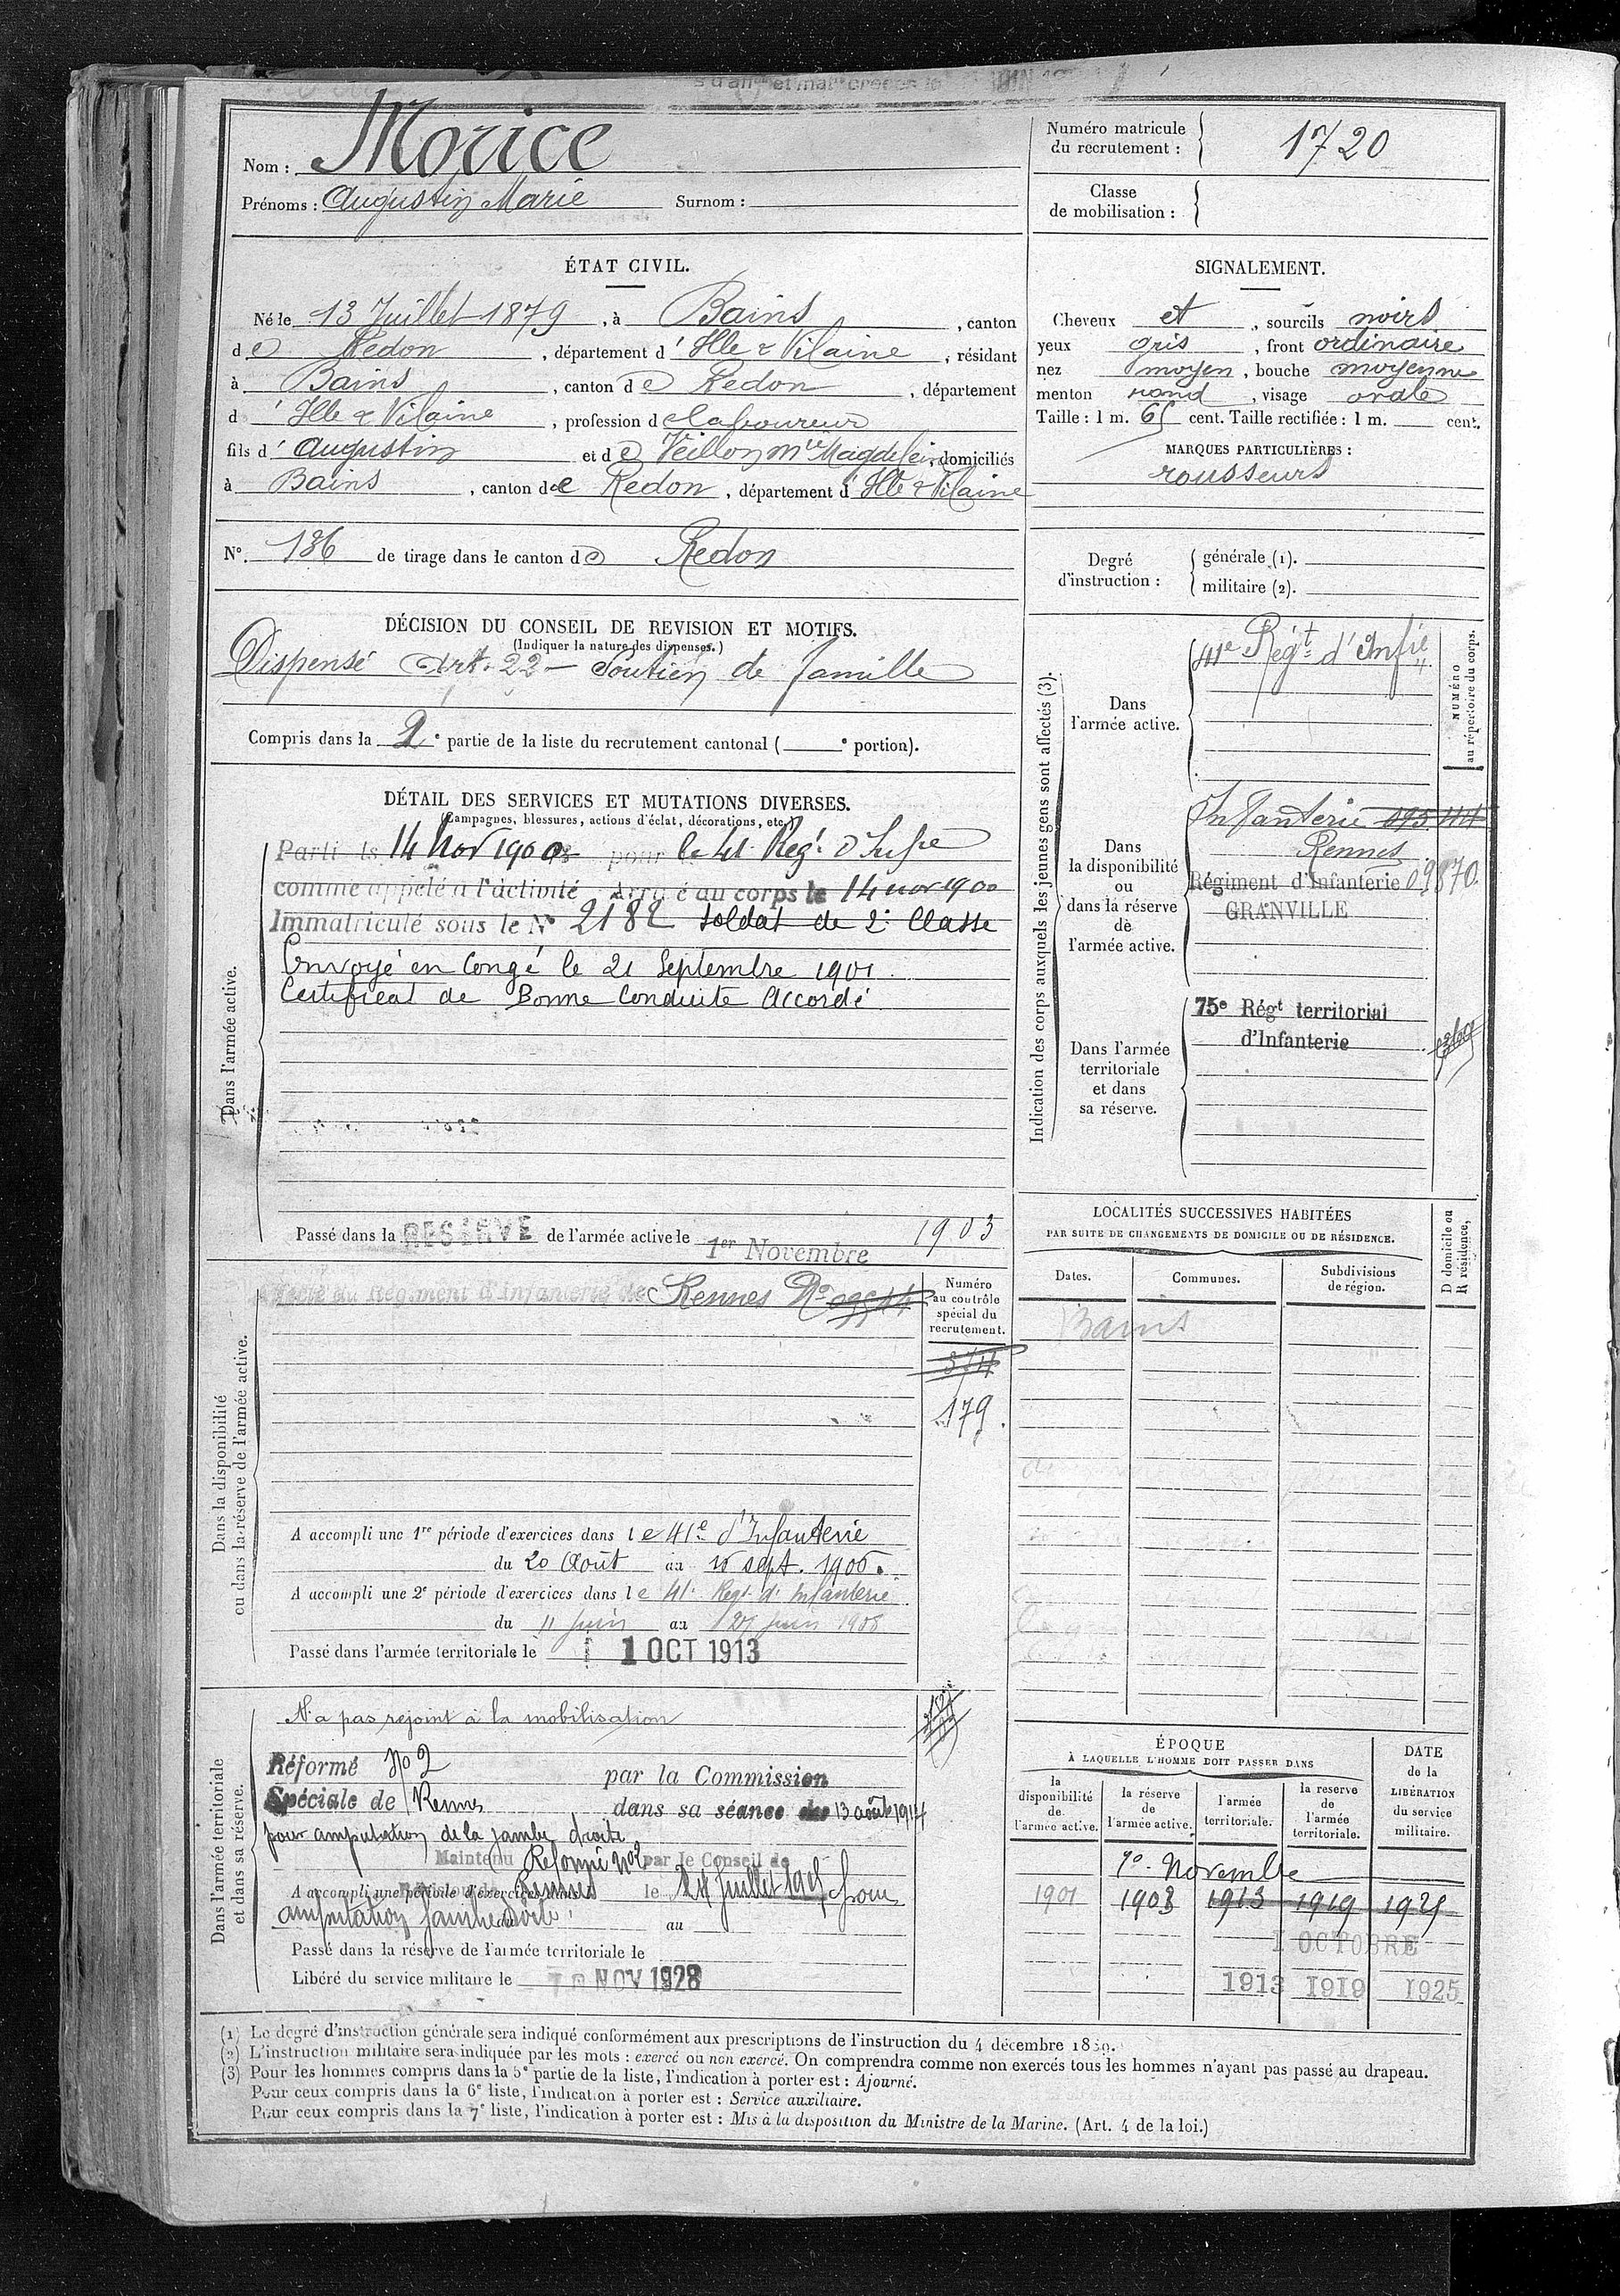 Nom : Morice
Prénoms : Augustin Marie Surnom :
Numéro matricule du recrutement : 1720
Classe de mobilisation :
ÉTAT CIVIL.
Né le 13 Juillet 1879, à Bains, canton
de Redon, département d'Ille & Vilaine, résidant
à Bains, canton de Redon, département
d'Ille & Vilaine, profession de laboureur
fils d'Augustin et de Veillon Mie Magdelei, domiciliés
à Bains, canton de Redon, département d'Ille & Vilaine
N°. 136 de tirage dans le canton de Redon
SIGNALEMENT.
Cheveux et, sourcils noirs
yeux gris, front ordinaire
nez moyen, bouche moyenne
menton rond, visage ovale
Taille : 1 m. 65 cent. Taille rectifiée : 1 m. cent.
MARQUES PARTICULIÈRES :
rousseurs
Degré d'instruction :
générale (1).
militaire (2).
DÉCISION DU CONSEIL DE REVISION ET MOTIFS.
(Indiquer la nature des dispenses.)
Dispensé Art. 22 - Soutien de famille
Compris dans la 2e partie de la liste du recrutement cantonal ( e portion).
DÉTAIL DES SERVICES ET MUTATIONS DIVERSES.
(Campagnes, blessures, actions d'éclat, décorations, etc.)
Dans l'armée active.
Parti le 14 Nov 1900 pour le 41 Regt d'Infie
comme appelé à l'activité Arrivé au corps le 14 nov 1900
Immatriculé sous le N° 2182 soldat de 2e Classe
Envoyé en Congé le 21 Septembre 1901.
Certificat de Bonne Conduite Accordé
Passé dans la RESERVE de l'armée active le 1er Novembre 1903
Indication des corps auxquels les jeunes gens sont affectés (3).
NUMÉRO au répertoire du corps.
Dans l'armée active.
41e Régt d'Infie
Dans la disponibilité ou dans la réserve de l'armée active.
Infanterie
Rennes
Régiment d'Infanterie 09870
GRANVILLE
Dans l'armée territoriale et dans sa réserve.
75e Régt territorial
d'Infanterie
Dans la disponibilité ou dans la réserve de l'armée active.
Affecté au Régiment d'Infanterie de Rennes No
Numéro au contrôle spécial du recrutement.
179.
A accompli une 1re période d'exercices dans le 41e d'Infanterie
du 20 Août au
A accompli une 2e période d'exercices dans le 41e Regt d'Infanterie
du 11 juin au juin 1908
Passé dans l'armée territoriale le 1 OCT 1913
LOCALITÉS SUCCESSIVES HABITÉES
PAR SUITE DE CHANGEMENTS DE DOMICILE OU DE RÉSIDENCE.
Dates. Communes. Subdivisions de région. D domicile ou R résidence,
Bains
Dans l'armée territoriale et dans sa réserve.
N'a pas rejoint à la mobilisation
Réformé No 2 par la Commission
Spéciale de Rennes dans sa séance du 13 août 1914
pour amputation de la jambe droite
Maintenu Réformé No 2 par le Conseil de
A accompli une période d'exercices dans Rennes le
amputation jambe droite
du au
Passé dans la réserve de l'armée territoriale le
Libéré du service militaire le NOV 1928
ÉPOQUE
À LAQUELLE L'HOMME DOIT PASSER DANS
la disponibilité de l'armée active.
la réserve de l'armée active.
l'armée territoriale.
la reserve de l'armée territoriale.
DATE de la LIBÉRATION du service militaire.
Novembre
1901 1903 1913 1919 1925
1 OCTOBRE
1913 1919 1925
(1) Le degré d'instruction générale sera indiqué conformément aux prescriptions de l'instruction du 4 décembre
(2) L'instruction militaire sera indiquée par les mots : exercé ou non exercé. On comprendra comme non exercés tous les hommes n'ayant pas passé au drapeau.
(3) Pour les hommes compris dans la 5e partie de la liste, l'indication à porter est : Ajourné.
Pour ceux compris dans la 6e liste, l'indication à porter est : Service auxiliaire.
Pour ceux compris dans la 7e liste, l'indication à porter est : Mis à la disposition du Ministre de la Marine. (Art. 4 de la loi.)